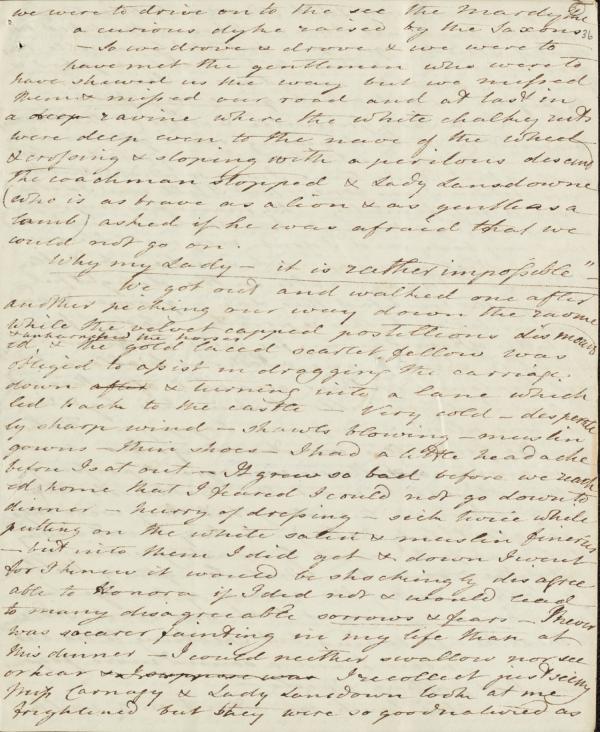 we were to drive on to the see the Mardyke
36
a curious dyke raised by the Saxons
– So we drove & drove & we were to
have met the gentlemen who were to
have shewed us the way but we missed
them & missed our road and at last in
a deep ravine where the white chalky ruts
were deep even to the nave of the wheel
& crossing & sloping with a perilous descent
the coachman stopped & Lady Lansdowne
(who is as brave as a lion & as gentle as a
lamb) asked if he was afraid that we
could not go on.
Why my Lady – it is rather impossible"–
We got out and walked one after
another picking our way down the ravine
while the velvet capped postillions dismount
& unharnessed the horses
ed & the gold laced scarlet fellow was
obliged to assist in dragging the carriage
down after & turning into a lane which
led back to the castle – Very cold – desperate
ly sharp wind – shawls blowing – muslin
gowns – thin shoes – I had a little headache
before I sat out – It grew so bad before we reach
ed home that I feared I could not go down to
dinner – hurry of dressing – sick twice while
putting on the white satin & muslin fineries
– but into them I did get & down I went
for I knew it would be shockingly disagree
able to Honora if I did not & would lead
to many disagreeable sorrows & fears – I never
was nearer fainting in my life than at
this dinner – I could neither swallow nor see
or hear & I suppose was I recollect just seeing
Miss Carnagy & Lady Lansdown look at me
frightened but they were so goodnatured as